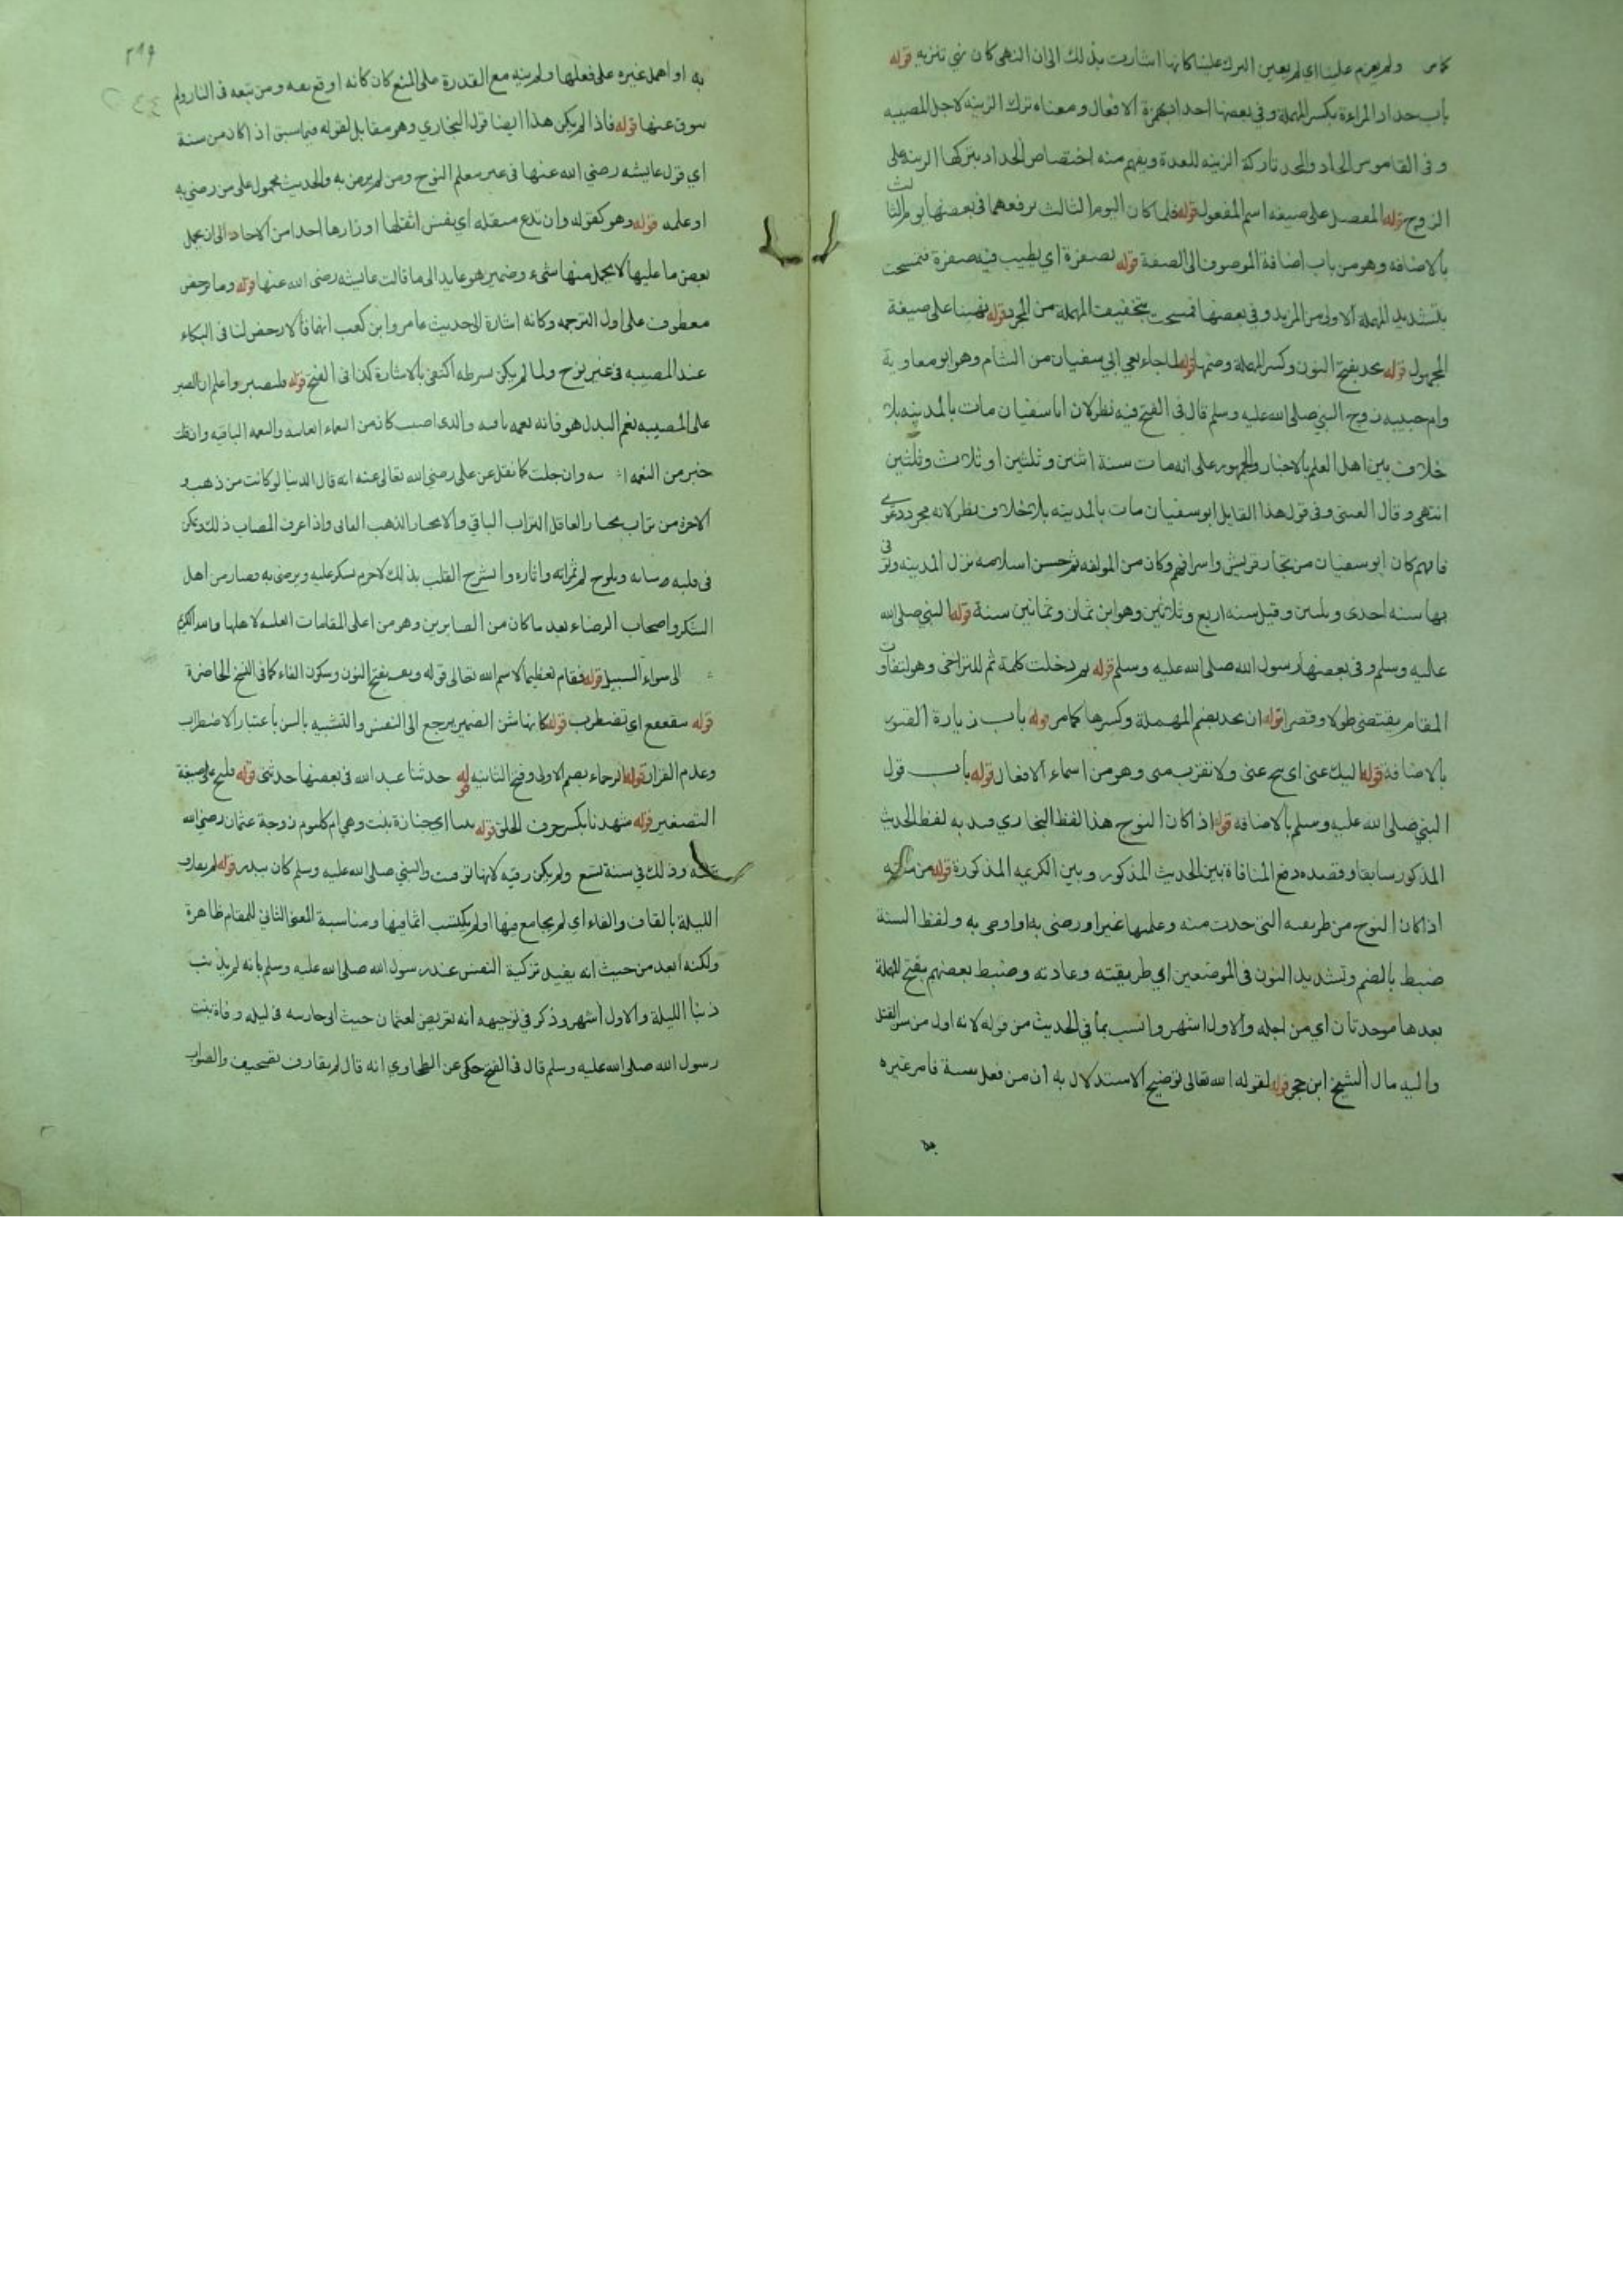 كما مر ولم يعزم علينا اي لم يعين الترك علينا كانها اشارت بذلك الى ان النهى كان نهي تنزيه قوله
باب حداد المراءة بكسر المهملة وفي بعضها احداد بهمزة الافعال ومعناه ترك الزينه لاجل المصيبه
وفى القاموس الحاد والمحد تاركة الزينه للعدة ويفهم منه اختصاص الحداد بتركها الزينه على
الزوج قوله المفضل على صيغه اسم المفعول قوله فلما كان اليوم الثالث برفعهما فى بعضها يوم الثالث
بالاضافه وهو من باب اضافة الموصوف الى الصفة قوله بصفرة اي بطيب فيه صفرة فتمسحت
بتشديد المهملة الاولى من المزيد وفى بعضها فمسحت بتخفيف المهملة من المجرد قوله نهينا على صيغة
المجهول قوله تحد بفتح النون وكسر المهملة وضمها قوله لما جاء نعي ابي سفيان من الشام وهو ابو معاوية
وام حبيبه زوج النبي صلى الله عليه وسلم قال فى الفتح فيه نظر لان ابا سفيان مات بالمدينه بلا
خلاف بين اهل العلم بالاخبار والجمهور على انه مات سنة اثنين وثلثين او ثلاث وثلثين
انتهى وقال العينى وفى قول هذا القايل ابو سفيان مات بالمدينه بلا خلاف نظر لانه مجرد دعوى
فافهم كان ابو سفيان من تجار قريش واشرافهم وكان من المولفه ثم حسن اسلامه نزل المدينه وتوفى
بها سنه احدى وثلثين وقيل سنه اربع وثلاثين وهو ابن ثمان وثمانين سنة قوله النبي صلى الله
عليه وسلم وفى بعضها رسول الله صلى الله عليه وسلم قوله ثم دخلت كلمة ثم للتراخى وهو لتفاوت
المقام يقتضى طولا وقصرا قوله ان تحد بضم المهملة وكسرها كما مر قوله باب زيارة القبور
بالاضافة قوله اليك عنى اى تنح عنى ولا تقرب منى وهو من اسماء الافعال قوله باب قول
النبي صلى الله عليه وسلم بالاضافه قوله اذا كان النوح هذا لفظ البخاري قيد به لفظ الحديث
المذكور سابقا وقصده دفع المنافاة بين الحديث المذكور وبين الكريمه المذكورة قوله من سنته
اذا كان النوح من طريقه التى حدت منه وعلمها غيرا ورضى به او اوصى به ولفظ السنة
ضبط بالضم وتشديد النون فى الموضعين اي طريقته وعادته وضبط بعضهم بفتح المهملة
بعدها موحدتان اي من اجله والاول اشهر وانسب بما في الحديث من قوله لانه اول من سن القتل
واليه مال الشيخ ابن حجر قوله لقوله الله تعالى توضيح الاستدلال به ان من فعل سنة فامر غيره
به
٢١٩
به او اهمل غيره على فعلها ولم ينه مع القدرة على المنع كان كانه اوقع نفسه ومن تبعه فى النار ولم
سوق عنها قوله فاذا لم يكن هذا ايضا قول البخاري وهو مقابل لقوله فيما سبق اذا كان من سنة
اي قول عايشه رضي الله عنها فى غير معلم النوح ومن لم يرض به والحديث محمول على من رضي به
او علمه قوله وهو كقوله وان تدع مثقله اي نفس اثقلها اوزارها احدا من الاحاد الى ان يحمل
بعض ما عليها لا يحمل منها شىء وضمير هو عايد الى ما قالت عايشه رضى الله عنها قوله وما يرخص
معطوف على اول الترجمه وكانه اشارة الى حديث عامر وابن كعب انهما قالا رخص لنا فى البكاء
عند المصيبه فى غير نوح ولما لم يكن شرطه اكتفى بالاشارة كذا فى الفتح قوله فلتصبر واعلم ان الصبر
على المصيبه نعم البدل هو فانه نعمه باقيه والذى اصيب كان من النعماء الفانيه والنعمه الباقيه وان قلت
خير من النعمه وان جلت كما نقل عن على رضي الله تعالى عنه انه قال الدنيا لو كانت من ذهب و
الاخرة من تراب يختار العاقل التراب الباقي والا يختار الذهب الفانى واذا عرف المصاب ذلك وتمكن
فى قلبه ويلوح لم ثمراته واثاره وانشرح القلب بذلك لاجرم يشكر عليه ويرضى به وصار من اهل
الشكر واصحاب الرضاء بعد ما كان من الصابرين وهو من اعلى المقامات العليه لاهلها والله الكريم
الى سواء السبيل قوله فقام تعظيما لاسم الله تعالى قوله ونفسه بفتح النون وسكون الفاء كما فى النسخ الحاضرة
قوله تتقعقع اي تضطرب قوله كانها شن الضمير يرجع الى النفس والتشبيه بالشن باعتبار الاضطراب
وعدم القرار قوله الرحماء بضم الاولى وفتح الثانيه قوله حدثنا عبد الله فى بعضها حدثنى قوله فليح على صيغة
التصغير قوله شهدنا بكسر حرف الحلق قوله بنتا اي جنازة بنت وهي ام كلثوم زوجة عثمان رضي الله
عنه وذلك في سنة تسع ولم يكن رقيه لانها توفت والنبي صلى الله عليه وسلم كان ببدر قوله لم يقارف
الليلة بالقاف والفاء اي لم يجامع فيها او لم يكتسب اثما فيها ومناسبة المعنى الثاني للمقام ظاهرة
ولكنه ابعد من حيث انه يفيد تزكية النفس عند رسول الله صلى الله عليه وسلم بانه لم يذنب
ذنبا الليلة والاول اشهر وذكر في توجيهه انه تعريض لعثمان حيث اتى جاريته فى ليله وفاة بنت
رسول الله صلى الله عليه وسلم قال فى الفتح حكى عن الطحاوي انه قال لم يقارف تصحيف والصواب